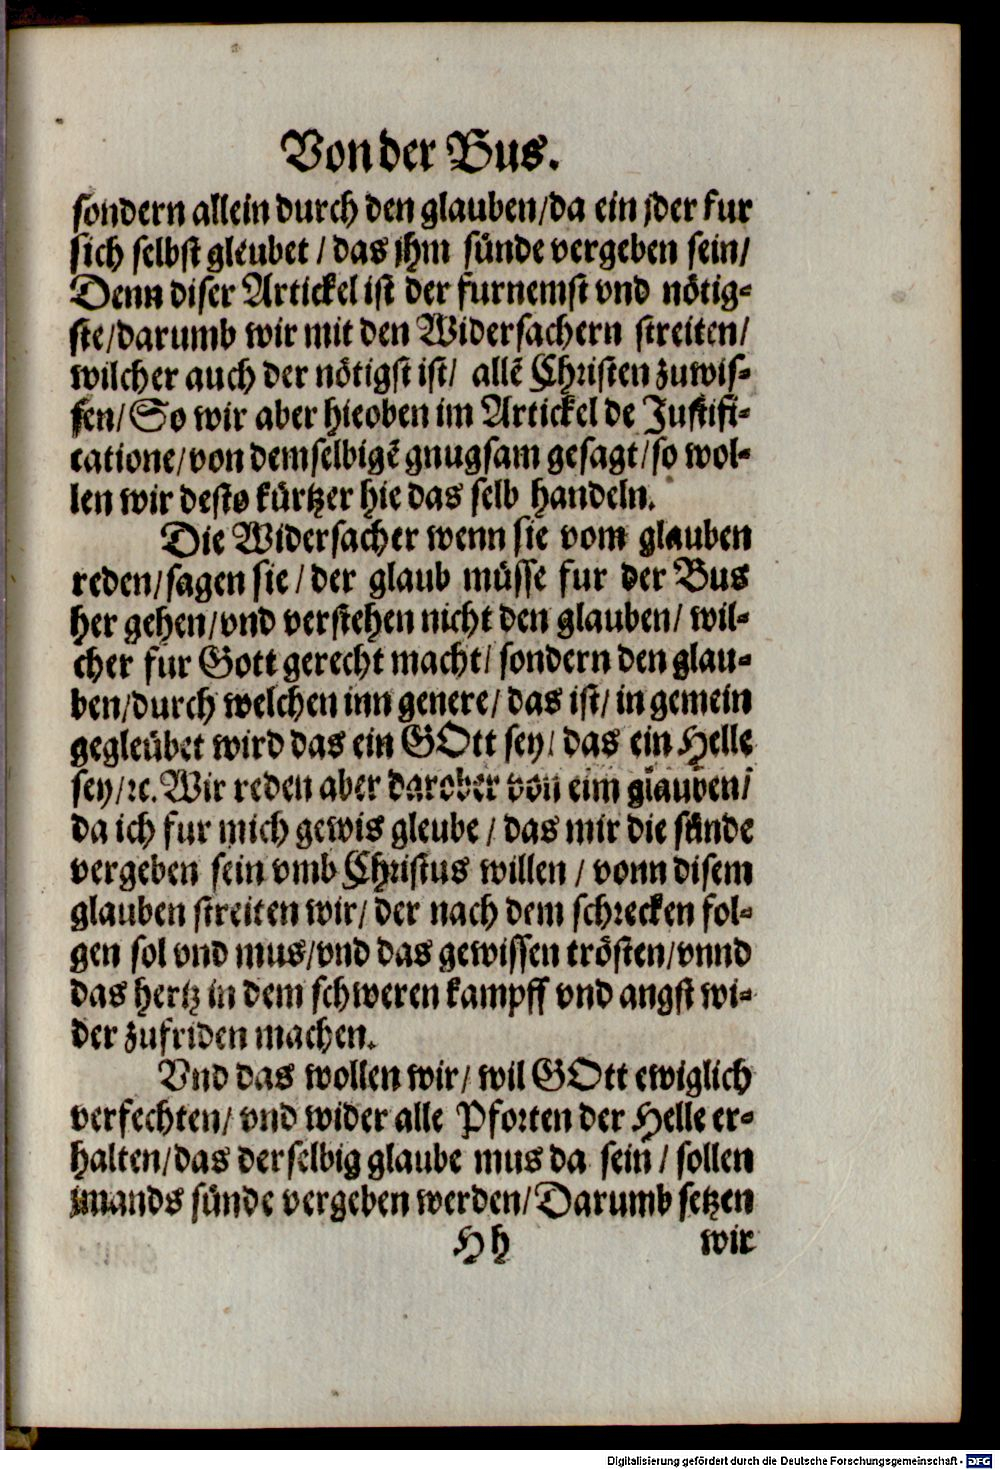 Von der Bus.
sondern allein durch den glauben/da ein jder fur
sich selbst gleubet / das jhm sünde vergeben sein/
Denn diser Artickel ist der furnemst vnd nötig-
ste/darumb wir mit den Widersachern streiten/
wilcher auch der nötigst ist/ allē Christen zuwis-
sen/ So wir aber hieoben im Artickel de Justifi-
catione/von demselbigē gnugsam gesagt/so wol-
len wir desto kürtzer hie das selb handeln.
Die Widersacher wenn sie vom glauben
reden/sagen sie / der glaub müsse fur der Bus
her gehen/vnd verstehen nicht den glauben/ wil-
cher fur Gott gerecht macht/ sondern den glau-
ben/durch welchen inn genere/ das ist/ in gemein
gegleübet wird das ein GOtt sey/ das ein Helle
sey/ꝛc. Wir reden aber darober von eim glauben/
da ich fur mich gewis gleube / das mir die sünde
vergeben sein vmb Christus willen / vonn disem
glauben streiten wir/ der nach dem schrecken fol-
gen sol vnd mus/vnd das gewissen trösten/vnnd
das hertz in dem schweren kampff vnd angst wi-
der zufriden machen.
Vnd das wollen wir/ wil GOtt ewiglich
verfechten/ vnd wider alle Pforten der Helle er-
halten/das derselbig glaube mus da sein / sollen
jmands sünde vergeben werden/Darumb setzen
Hh wir
Digitalisierung gefördert durch die Deutsche Forschungsgemeinschaft - DFG